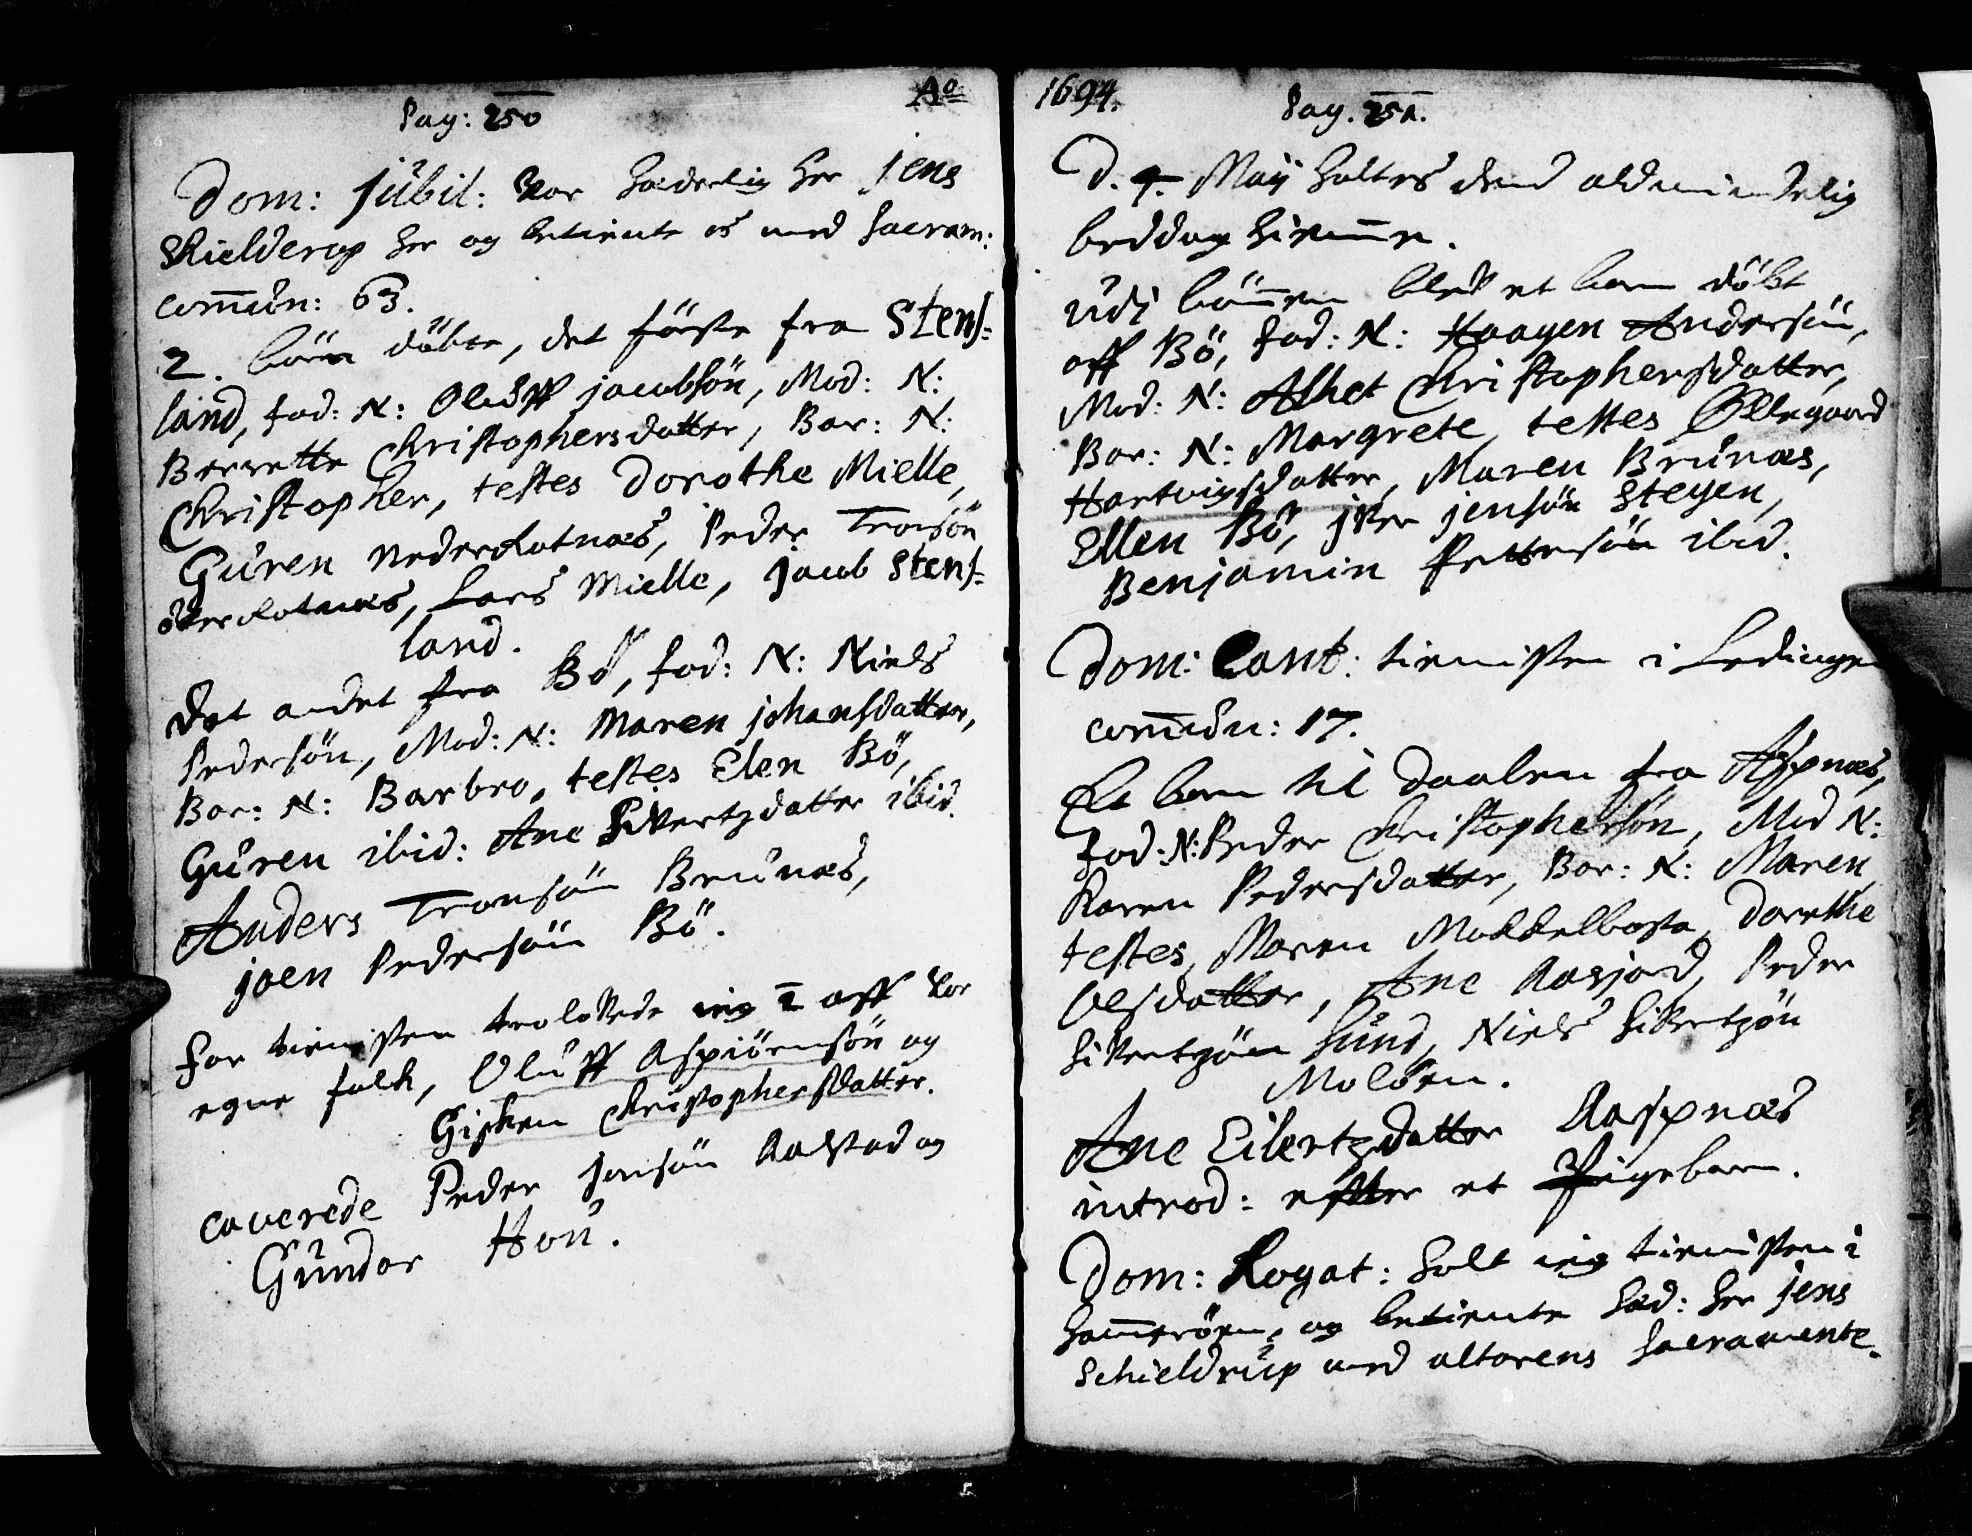 Pag: 250
Aº
Dom: Jubil: Var hæderlig her Jens
Skielderop her og betiente os med sacram:
com̅un: 63.
2. börn döbte, det förste fra Stens-
land, fad: N: Oluff jacobsön, Mod: N:
Berrette Christophersdatter, Bar: N:
Christopher, testes Dorothe Mielle,
Guren NederRotnæs, Peder Tronsön
överRotnæs, Lars Mielle, jacob Stens-
land.
Det andet fra Bö, fad: N: Niels
Pedersön, Mod: N: Maren johansdatter,
Bar: N: Barbro, testes Elen Bö,
Guren ibid: Ane Sivertzdatter ibid.
Anders Tronsön Brunæs,
joen Pedersön Bö.
For tienisten trolovede ieg 2 aff vor
egne folk, Oluff Aspiörnsön og
Gisken Christophersdatter.
caverede Peder Jonsön Aalstad og
Gundor Hou.
1694.
Pag. 251.
D. 4. Maij holtes dend aldmindelig
beddag hiem̅e.
udi bön̅en blev et barn döbt
aff Bö, fad: N: Haagen Andersön,
Mod: N: Alhet Christophersdatter,
Bar: N: Margrete, testes Øllegaard
Hartvigsdatter, Maren Brunæs,
Ellen Bö, jver jensön Steyen,
Benjamin Pettersön ibid.
Dom: Cant: tienisten i Lødingen
com̅un: 17.
Et barn til daaben fra Aspnæs,
fad: N: Peder Christophersön, Mod N:
Karen Pedersdatter, Bar: N: Maren,
testes, Maren Mokkelbosta, Dorethe
Olsdatter, Ane Aasjord, Peder
Sivertzön Sund, Niels Sivertzön
Molöen.
Ane Eilertzdatter Aaspnæs
introd: efter et Pigebarn.
Dom: Rogat: holt ieg tienisten i
Ham̅eröen, og betiente hæd: her Jens
Schieldrup med altarens Sacramente.